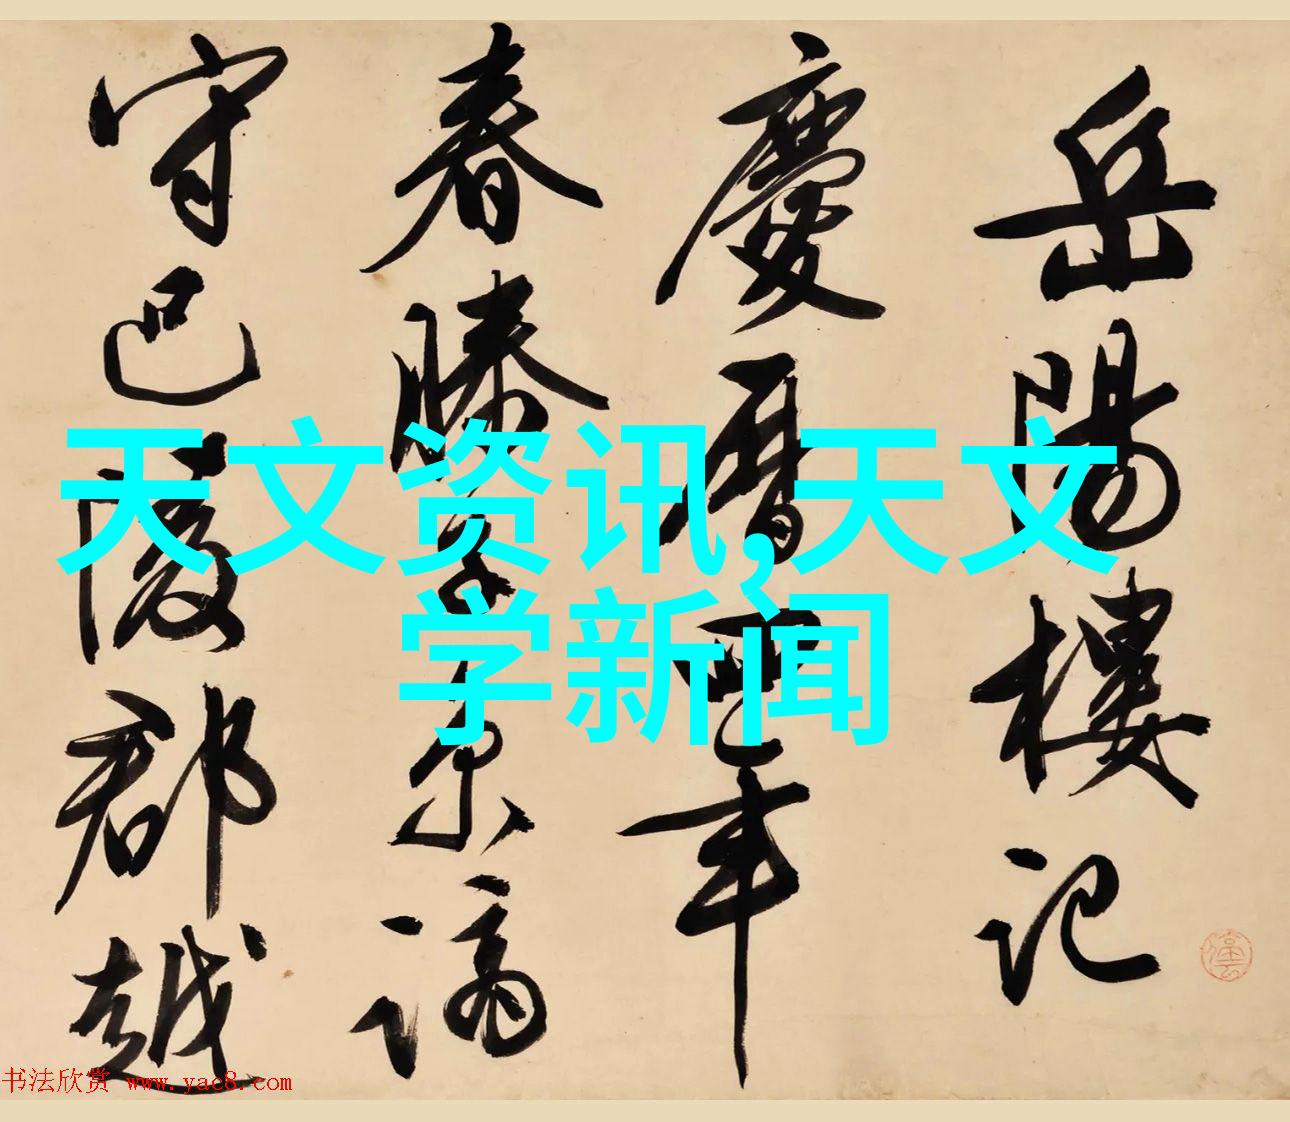 岳陽樓記
慶曆四年
春滕子京謫
守巴陵郡越
天文资讯,天文
学新闻
书法欣赏 www.yac8.com